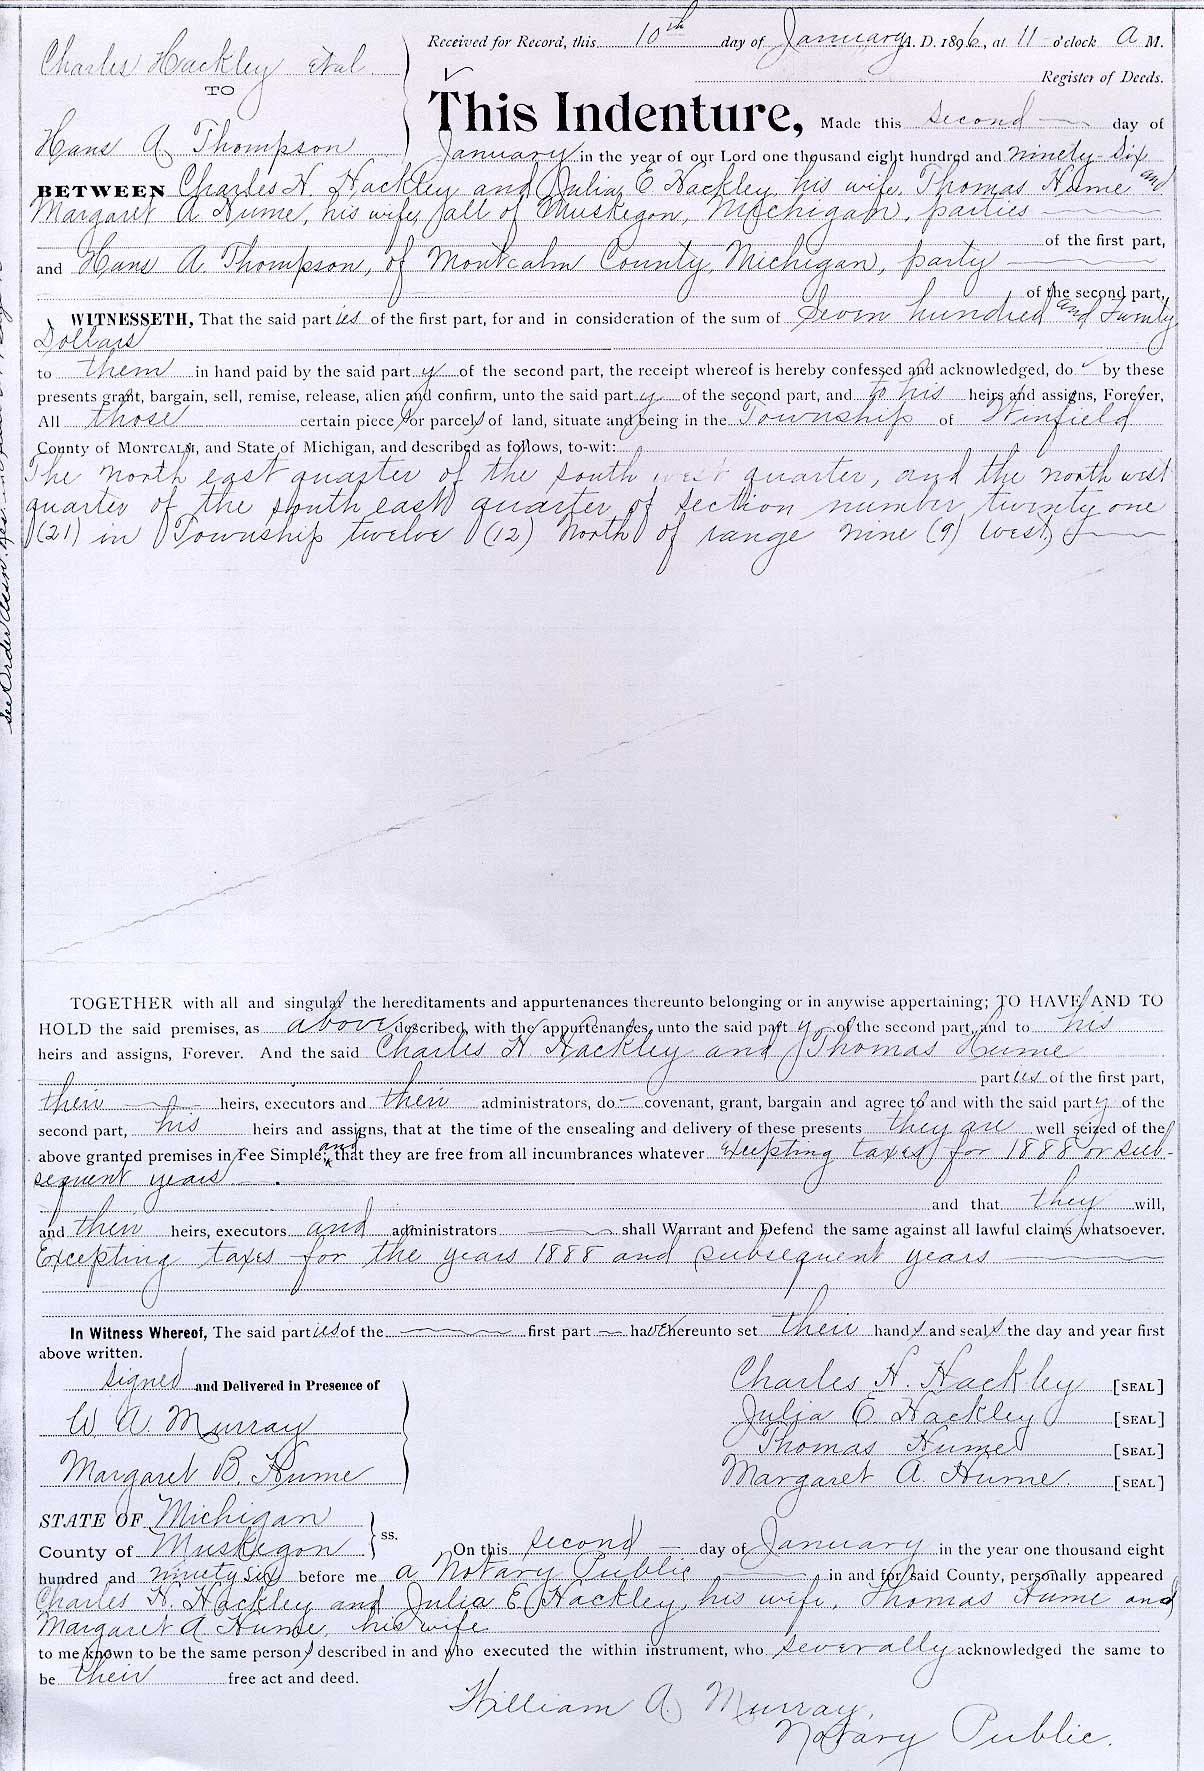 Received for Record, this 10th day of January A. D. 1896, at 11 o'clock A M.
Charles Hackley etal
Register of Deeds.
TO
This Indenture, Made this second day of
Hans A Thompson
January in the year of our Lord one thousand eight hundred and ninety-six
BETWEEN Charles H. Hackley and Julia E Hackley his wife, Thomas Hume and
Margaret A Hume, his wife, all of Muskegon, Michigan, parties
of the first part,
and Hans A. Thompson, of Montcalm County, Michigan, party
of the second part,
WITNESSETH, That the said parties of the first part, for and in consideration of the sum of Seven hundred and
Dollars
to them in hand paid by the said party of the second part, the receipt whereof is hereby confessed and acknowledged, do by these
presents grant, bargain, sell, remise, release, alien and confirm, unto the said party of the second part, and to his heirs and assigns, Forever,
All those certain piece or parcels of land, situate and being in the Township of Winfield
County of MONTCALM, and State of Michigan, and described as follows, to-wit:
The north east quarter of the south west quarter, and the north west
quarter of the south east quarter of section number twenty one
(21) in Township twelve (12) North of range nine (9) west,
see Order Assn.
TOGETHER with all and singular the hereditaments and appurtenances thereunto belonging or in anywise appertaining; TO HAVE AND TO
HOLD the said premises, as above described, with the appurtenances, unto the said party of the second part, and to his
heirs and assigns, Forever. And the said Charles H Hackley and Thomas Hume
parties of the first part,
their heirs, executors and their administrators, do covenant, grant, bargain and agree to and with the said party of the
second part, his heirs and assigns, that at the time of the ensealing and delivery of these presents they are well seized of the
above granted premises in Fee Simple; and that they are free from all incumbrances whatever excepting taxes for 1888 or sub-
sequent years
and that they will,
and their heirs, executors and administrators shall Warrant and Defend the same against all lawful claims whatsoever.
Excepting taxes for the years 1888 and subsequent years
In Witness Whereof, The said parties of the first part have hereunto set their hands and seals the day and year first
above written.
signed and Delivered in Presence of
W A. Murray
Margaret B. Hume
Charles H. Hackley [SEAL]
Julia E Hackley [SEAL]
Thomas Hume [SEAL]
Margaret A. Hume. [SEAL]
STATE OF Michigan
County of Muskegon ss. On this second day of January in the year one thousand eight
hundred and ninety six before me a Notary Public in and for said County, personally appeared
Charles H. Hackley and Julia E Hackley, his wife, Thomas Hume and
Margaret A Hume, his wife
to me known to be the same persons described in and who executed the within instrument, who severally acknowledged the same to
be their free act and deed.
William A. Murray,
Notary Public.